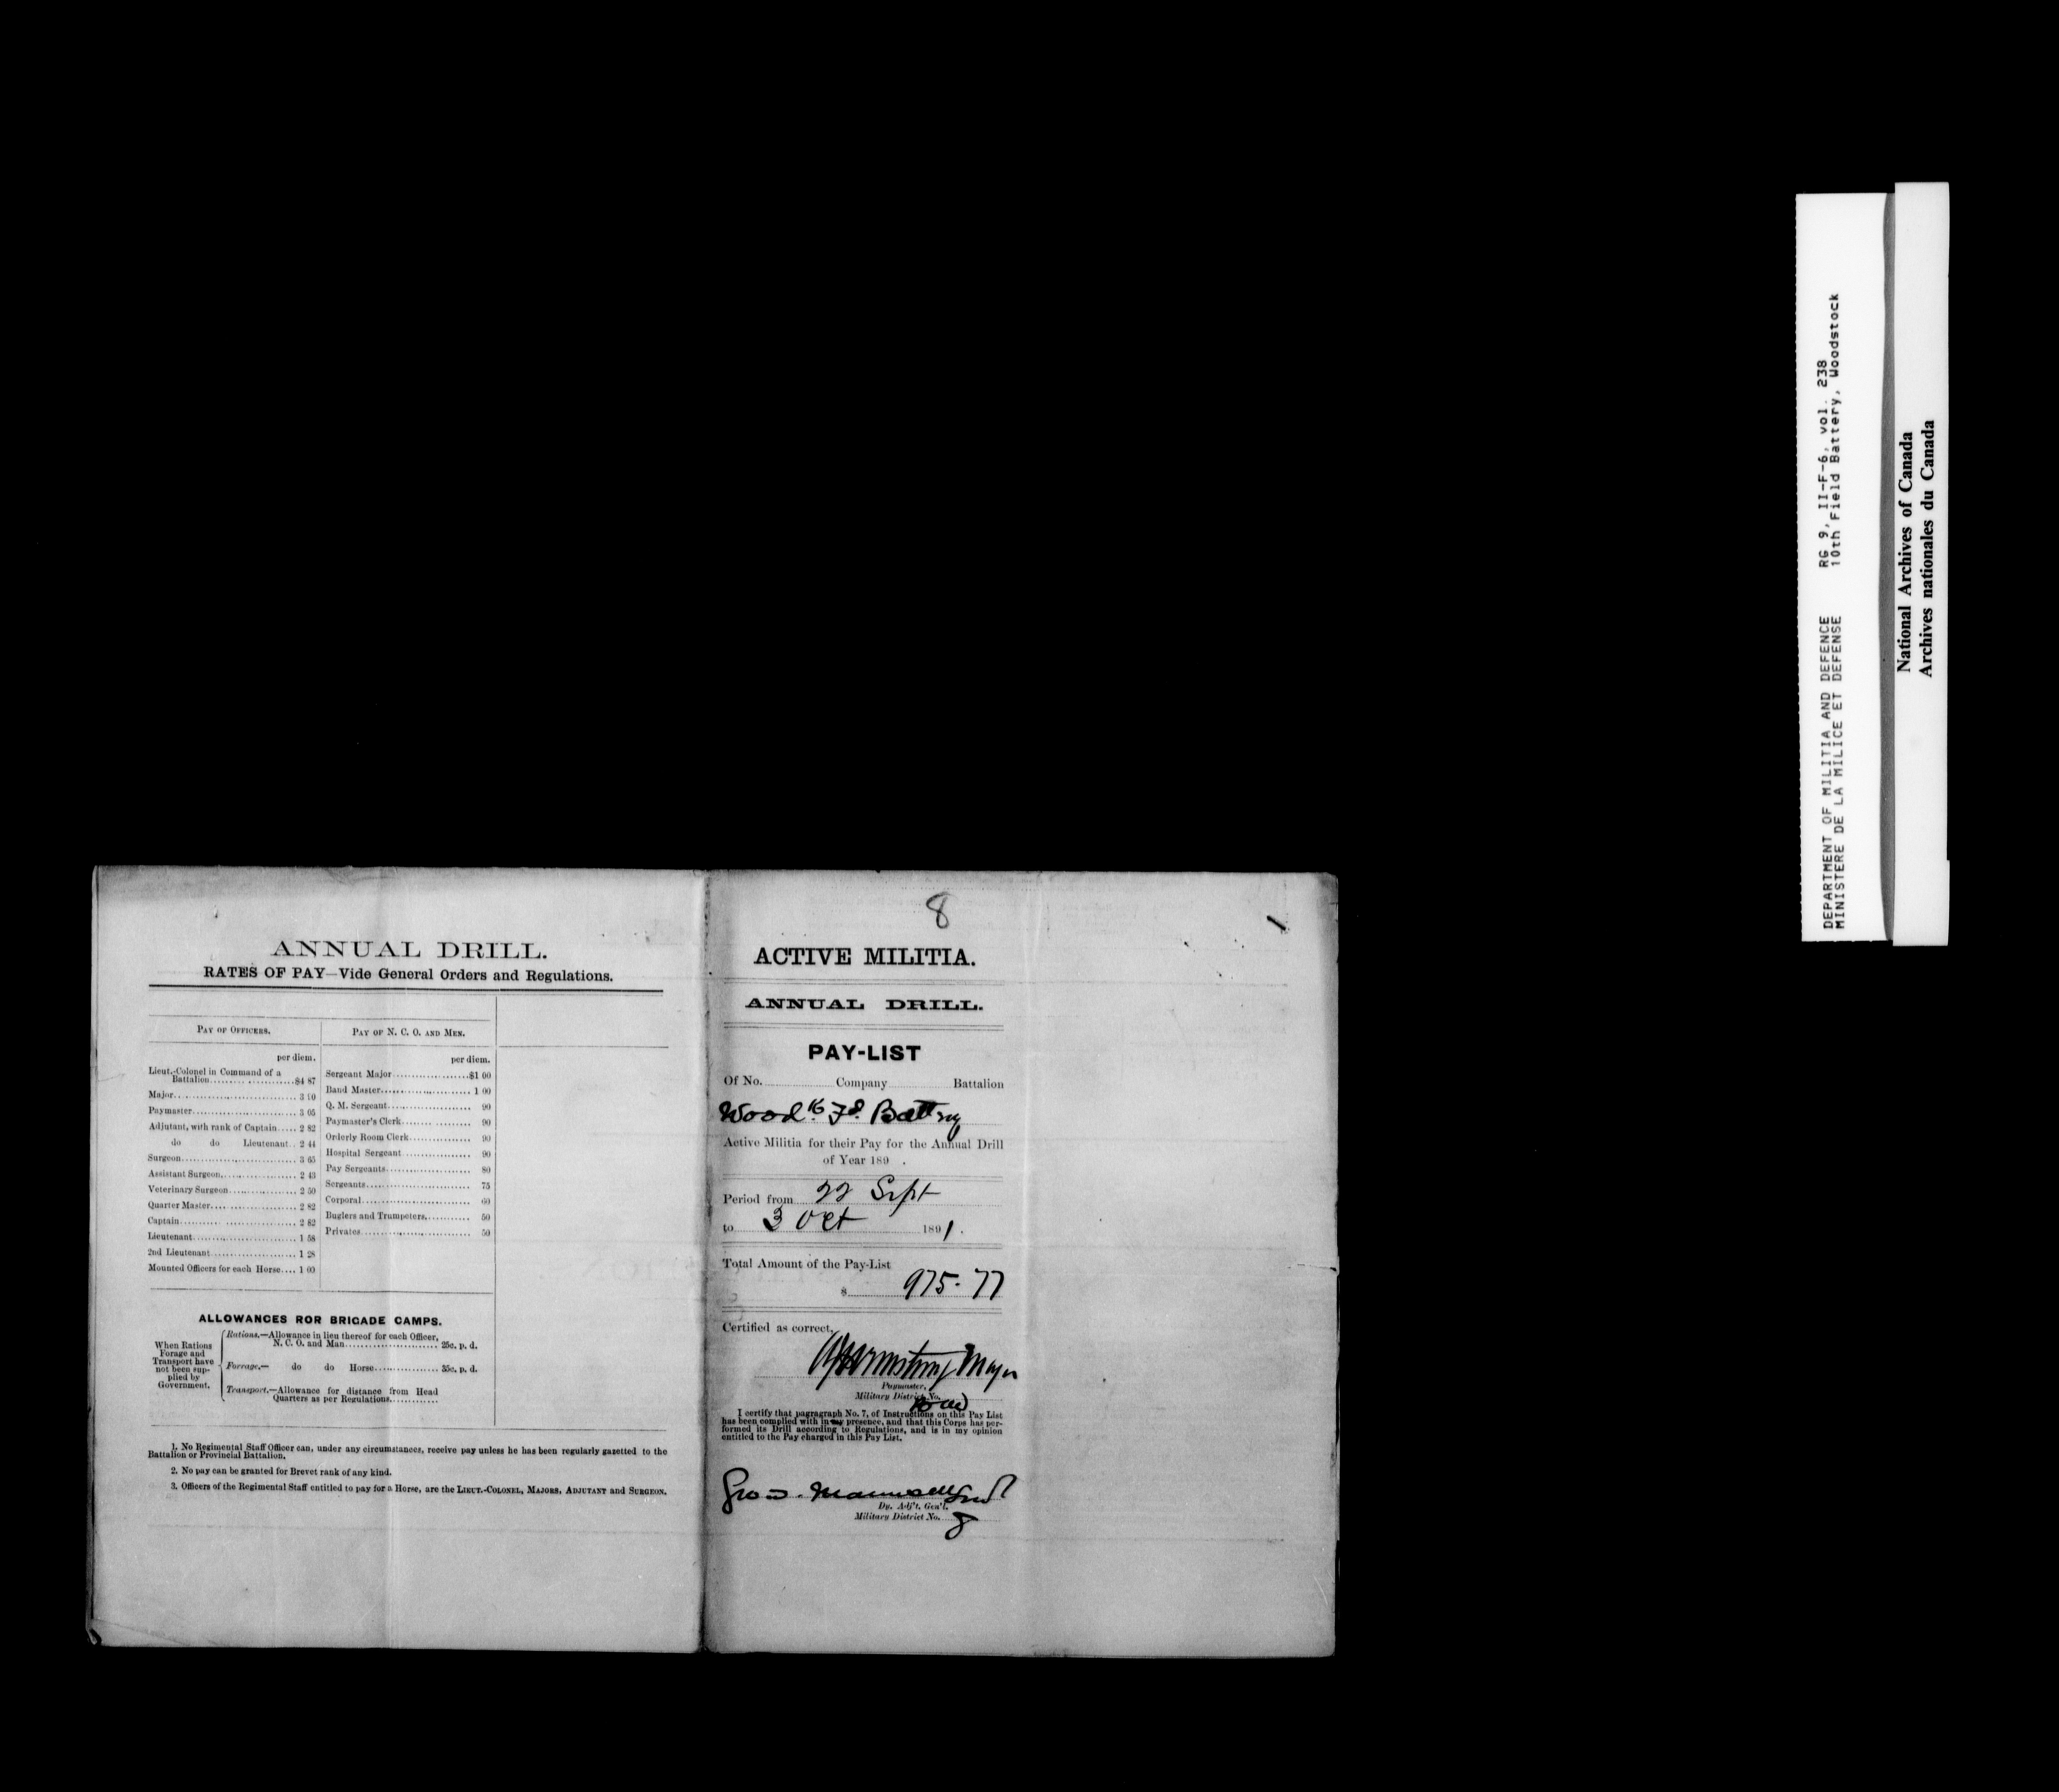 ANNUAL DRILL.
RATES OF PAY—Vide General Orders and Regulations.
PAY OF OFFICERS.
per diem.
Lieut.-Colonel in Command of a
Battalion..................$4 87
Major.............................. 3 90
Paymaster......................... 3 05
Adjutant, with rank of Captain..... 2 82
do do Lieutenant.. 2 44
Surgeon............................ 3 65
Assistant Surgeon.................. 2 43
Veterinary Surgeon................. 2 50
Quarter Master..................... 2 82
Captain............................ 2 82
Lieutenant......................... 1 58
2nd Lieutenant..................... 1 28
Mounted Officers for each Horse.... 1 00
PAY OF N. C. O. AND MEN.
per diem.
Sergeant Major...................$1 00
Band Master...................... 1 00
Q. M. Sergeant................... 90
Paymaster's Clerk................ 90
Orderly Room Clerk............... 90
Hospital Sergeant................ 90
Pay Sergeants.................... 80
Sergeants........................ 75
Corporal......................... 60
Buglers and Trumpeters........... 50
Privates......................... 50
ALLOWANCES ROR BRIGADE CAMPS.
When Rations
Forage and
Transport have
not been sup-
plied by
Government.
Rations.—Allowance in lieu thereof for each Officer,
N. C. O. and Man........................ 25c. p. d.
Forrage.— do do Horse................ 35c. p. d.
Transport.—Allowance for distance from Head
Quarters as per Regulations............
1. No Regimental Staff Officer can, under any circumstances, receive pay unless he has been regularly gazetted to the
Battalion or Provincial Battalion.
2. No pay can be granted for Brevet rank of any kind.
3. Officers of the Regimental Staff entitled to pay for a Horse, are the LIEUT.-COLONEL, MAJORS, ADJUTANT and SURGEON.
8
ACTIVE MILITIA.
ANNUAL DRILL.
PAY-LIST
Of No. Company Battalion
Wood Fd. Battery
Active Militia for their Pay for the Annual Drill
of Year 189 .
Period from 22 Sept
to 3 Oct 1891.
Total Amount of the Pay-List
$ 975-77
Certified as correct,
Armstrong Major
Paymaster,
Military District No.
I certify that pagragraph No. 7, of Instructions on this Pay List
has been complied with in my presence, and that this Corps has per-
formed its Drill according to Regulations, and is in my opinion
entitled to the Pay charged in this Pay List.
Geo. J. Maunsell
Dy. Adj't. Gen'l.
Military District No. 8
DEPARTMENT OF MILITIA AND DEFENCE RG 9, II-F-6, vol. 238
MINISTERE DE LA MILICE ET DEFENSE 10th Field Battery, Woodstock
National Archives of Canada
Archives nationales du Canada